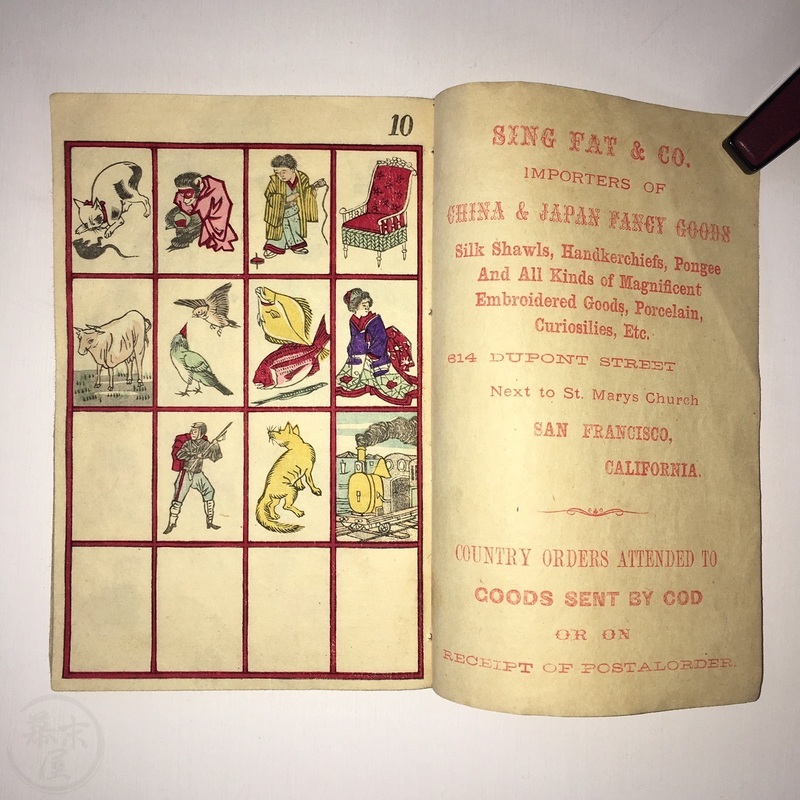 10
SING FAT & CO.
IMPORTERS OF
CHINA & JAPAN FANCY GOODS
Silk Shawls, Handkerchiefs, Pongee
And All Kinds of Magnificent
Embroidered Goods, Porcelain,
Curiosilies, Etc.
614 DUPONT STREET
Next to St. Marys Church
SAN FRANCISCO,
CALIFORNIA.
COUNTRY ORDERS ATTENDED TO
GOODS SENT BY COD
OR ON
RECEIPT OF POSTALORDER.
幕末屋